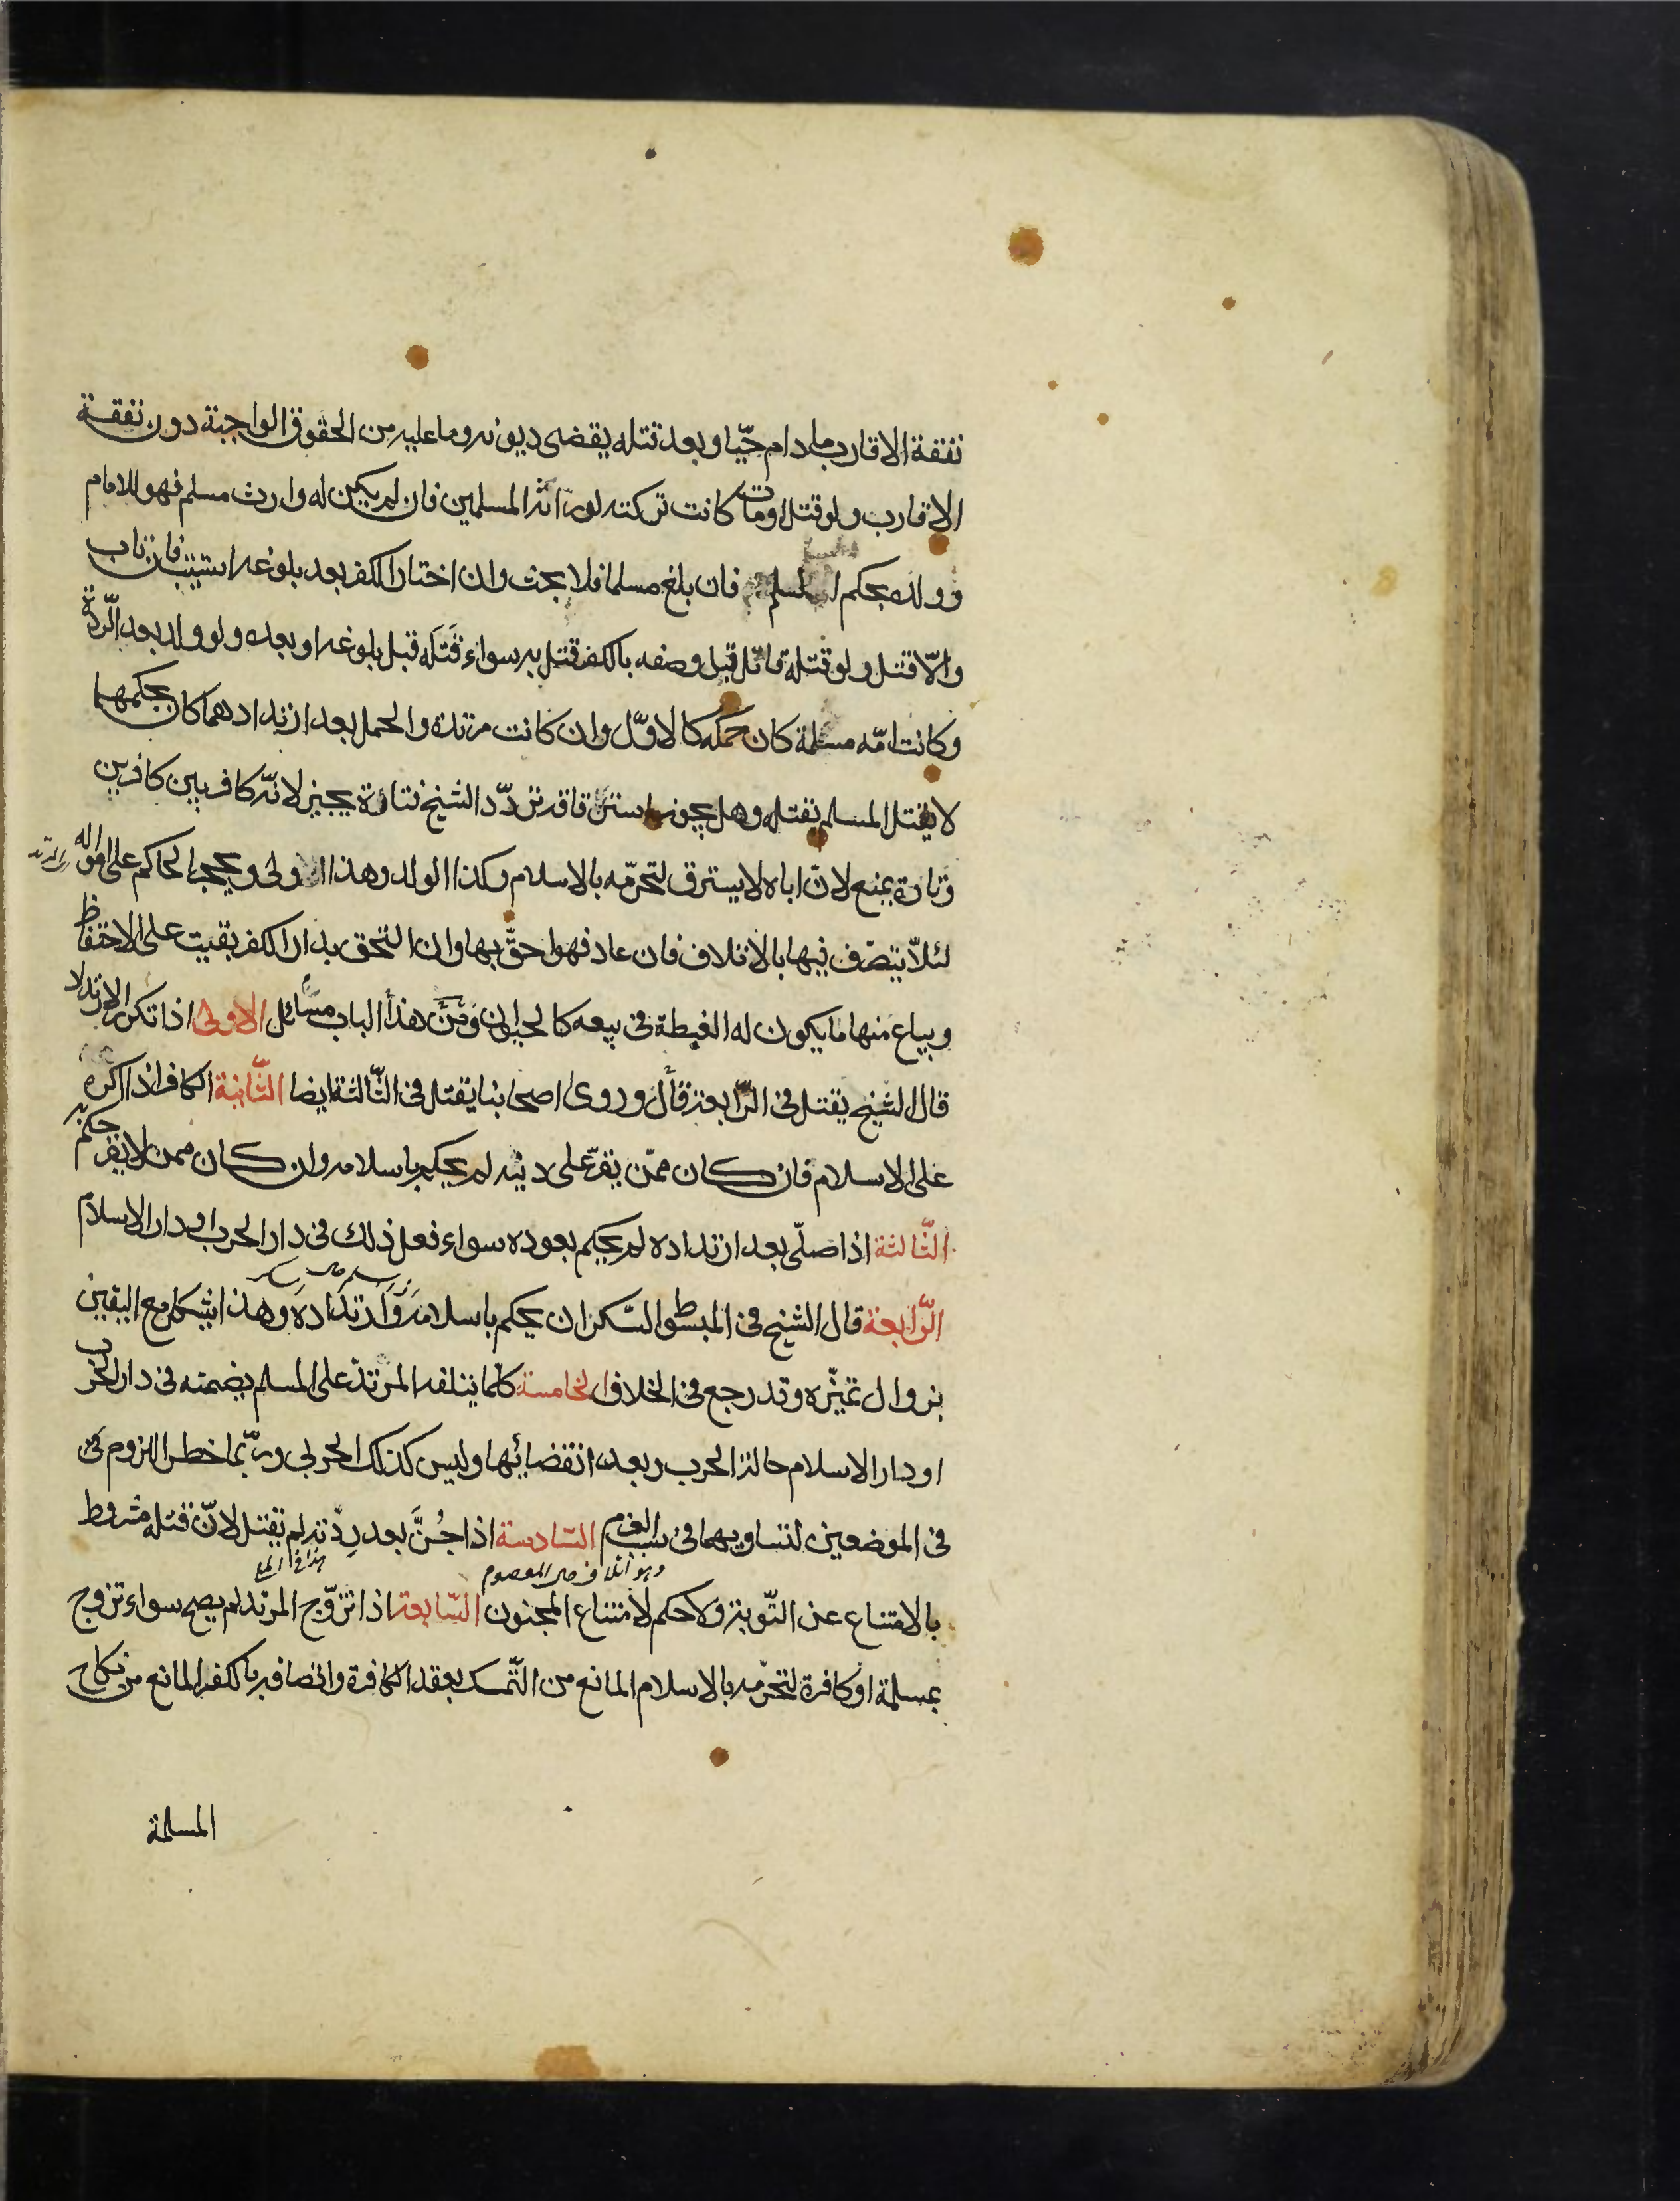 نفقة الاقارب مادام حيّا وبعد قتله يقضى ديونه وما عليه من الحقوق الواجبة دون نفقة
الاقارب ولو قتل او مات كانت تركته لورثته المسلمين فان لم يكن له وارث مسلم فهو للامام
وولده بحكم المسلم فان بلغ مسلما فلا بحث وان اختار الكفر بعد بلوغه استتيب فان تاب
والّا قتل ولو قتله قاتل قبل وصفه بالكفر قتل به سواء قتله قبل بلوغه او بعده ولو ولد بعد الرّدة
وكانت امّه مسلمة كان حكمه كالاوّل وان كانت مرتدة والحمل بعد ارتدادهما كان بحكمهما
لا يقتل المسلم بقتله وهل يجوز استرقاقه تردّد الشيخ فتارة يجيز لانّه كافر بين كافرين
وتارة يمنع لانّ اباه لا يسترق لتحرّمه بالاسلام وكذا الولد وهذا اولى ويحجر الحاكم على امواله
لئلّا يتصرّف فيها بالاتلاف فان عاد فهو احقّ بها وان التحق بدار الكفر بقيت على الاحتفاظ
ويباع منها ما يكون له الغبطة فى بيعه كالحيوان ومن هذا الباب مسائل الاولى اذا تكرر الارتداد
قال الشيخ يقتل فى الرّابعة قال وروى اصحابنا يقتل فى الثّالثة ايضا الثّانية الكافر اذا اكره
على الاسلام فان كان ممّن يقرّ على دينه لم يحكم باسلامه وان كان ممن لا يقر حكم به
الثّالثة اذا صلّى بعد ارتداده لم يحكم بعوده سواء فعل ذلك فى دار الحرب او دار الاسلام
الرّابعة قال الشيخ فى المبسوط والسّكران يحكم باسلامه وارتداده وهذا يشكل مع اليقين
بزوال تميّزه وقد رجع فى الخلاف الخامسة كلّما يتلفه المرتدّ على المسلم يضمنه فى دار الحرب
او دار الاسلام حالة الحرب وبعد انقضائها وليس كذلك الحربى وربّما خطر اللزوم فى
فى الموضعين لتساويهما فى سبب الغرم السّادسة اذا جُنَّ بعد رِدّته لم يقتل لانّ قتله مشروط
وهو اتلاف مال المعصوم
بالامتناع عن التّوبة ولا حكم لامتناع المجنون السّابعة اذا تزوّج المرتد لم يصح سواء تزوج
بمسلمة او كافرة لتحرّمه بالاسلام المانع من التّمسك بعقد الكافرة واتصافه بالكفر المانع من نكاح
المسلمة